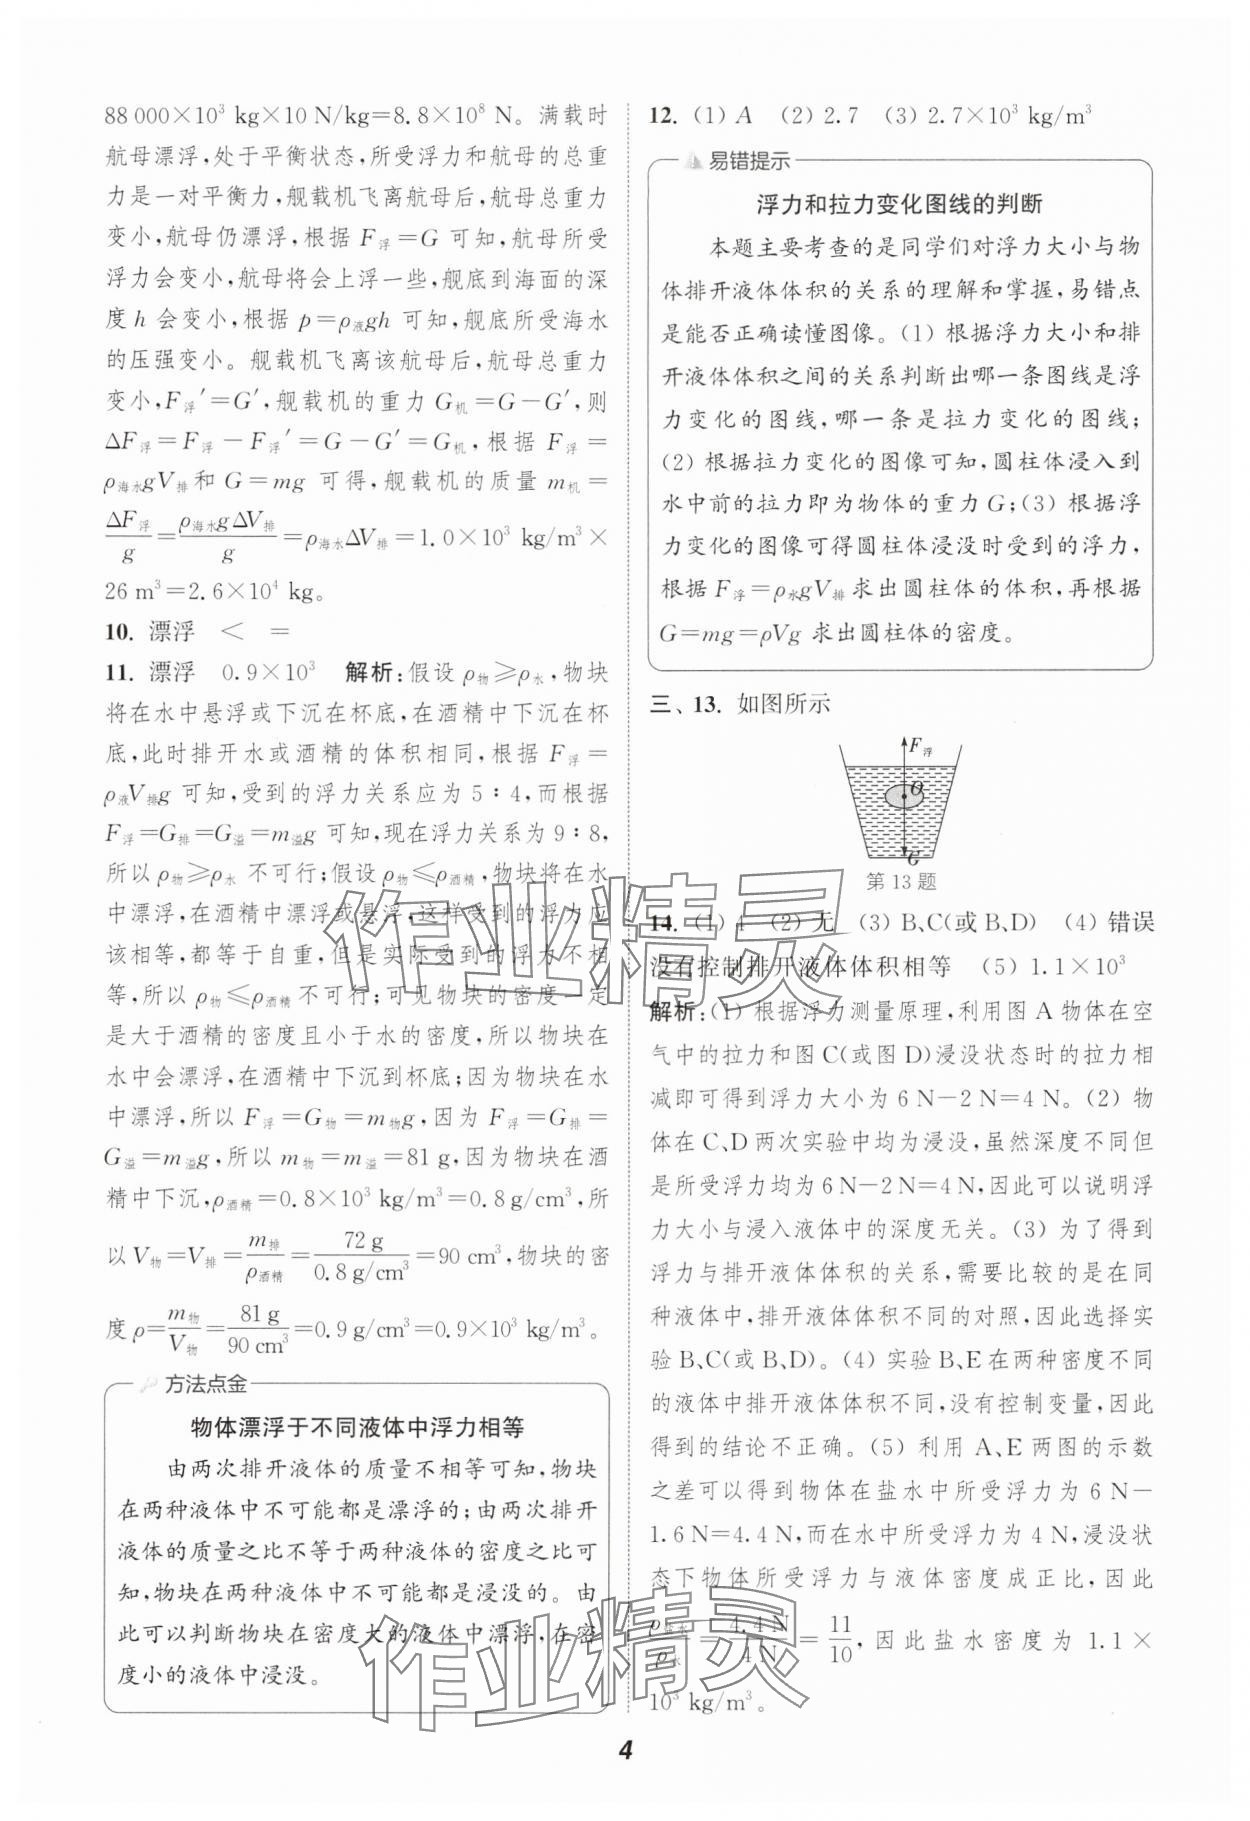 88 000×10³ kg×10 N/kg=8.8×10⁸ N。满载时
航母漂浮,处于平衡状态,所受浮力和航母的总重
力是一对平衡力,舰载机飞离航母后,航母总重力
变小,航母仍漂浮,根据 F浮=G 可知,航母所受
浮力会变小,航母将会上浮一些,舰底到海面的深
度 h 会变小,根据 p=ρ液gh 可知,舰底所受海水
的压强变小。舰载机飞离该航母后,航母总重力
变小,F浮′=G′,舰载机的重力 G机=G-G′,则
ΔF浮=F浮-F浮′=G-G′=G机,根据 F浮=
ρ海水gV排和 G=mg 可得,舰载机的质量 m机=
ΔF浮/g=ρ海水gΔV排/g=ρ海水ΔV排=1.0×10³ kg/m³×
26 m³=2.6×10⁴ kg。
10. 漂浮 < =
11. 漂浮 0.9×10³ 解析:假设 ρ物≥ρ水,物块
将在水中悬浮或下沉在杯底,在酒精中下沉在杯
底,此时排开水或酒精的体积相同,根据 F浮=
ρ液V排g 可知,受到的浮力关系应为 5∶4,而根据
F浮=G排=G溢=m溢g 可知,现在浮力关系为 9∶8,
所以 ρ物≥ρ水 不可行;假设 ρ物≤ρ酒精,物块将在水
中漂浮,在酒精中漂浮或悬浮,这样受到的浮力应
该相等,都等于自重,但是实际受到的浮力不相
等,所以 ρ物≤ρ酒精不可行;可见物块的密度一定
是大于酒精的密度且小于水的密度,所以物块在
水中会漂浮,在酒精中下沉到杯底;因为物块在水
中漂浮,所以 F浮=G物=m物g,因为 F浮=G排=
G溢=m溢g,所以 m物=m溢=81 g,因为物块在酒
精中下沉,ρ酒精=0.8×10³ kg/m³=0.8 g/cm³,所
以 V物=V排=m排/ρ酒精=72 g/0.8 g/cm³=90 cm³,物块的密
度 ρ=m物/V物=81 g/90 cm³=0.9 g/cm³=0.9×10³ kg/m³。
方法点金
物体漂浮于不同液体中浮力相等
由两次排开液体的质量不相等可知,物块
在两种液体中不可能都是漂浮的;由两次排开
液体的质量之比不等于两种液体的密度之比可
知,物块在两种液体中不可能都是浸没的。由
此可以判断物块在密度大的液体中漂浮,在密
度小的液体中浸没。
12. (1) A (2) 2.7 (3) 2.7×10³ kg/m³
易错提示
浮力和拉力变化图线的判断
本题主要考查的是同学们对浮力大小与物
体排开液体体积的关系的理解和掌握,易错点
是能否正确读懂图像。(1) 根据浮力大小和排
开液体体积之间的关系判断出哪一条图线是浮
力变化的图线,哪一条是拉力变化的图线;
(2) 根据拉力变化的图像可知,圆柱体浸入到
水中前的拉力即为物体的重力 G;(3) 根据浮
力变化的图像可得圆柱体浸没时受到的浮力,
根据 F浮=ρ水gV排 求出圆柱体的体积,再根据
G=mg=ρVg 求出圆柱体的密度。
三、13. 如图所示
F浮
O
G
第 13 题
14. (1) 4 (2) 无 (3) B、C(或 B、D) (4) 错误
没有控制排开液体体积相等 (5) 1.1×10³
解析:(1) 根据浮力测量原理,利用图 A 物体在空
气中的拉力和图 C(或图 D)浸没状态时的拉力相
减即可得到浮力大小为 6 N-2 N=4 N。(2) 物
体在 C、D 两次实验中均为浸没,虽然深度不同但
是所受浮力均为 6 N-2 N=4 N,因此可以说明浮
力大小与浸入液体中的深度无关。(3) 为了得到
浮力与排开液体体积的关系,需要比较的是在同
种液体中,排开液体体积不同的对照,因此选择实
验 B、C(或 B、D)。(4) 实验 B、E 在两种密度不同
的液体中排开液体体积不同,没有控制变量,因此
得到的结论不正确。(5) 利用 A、E 两图的示数
之差可以得到物体在盐水中所受浮力为 6 N-
1.6 N=4.4 N,而在水中所受浮力为 4 N,浸没状
态下物体所受浮力与液体密度成正比,因此
ρ盐水/ρ水=4.4 N/4 N=11/10,因此盐水密度为 1.1×
10³ kg/m³。
作业精灵
作业精灵
4